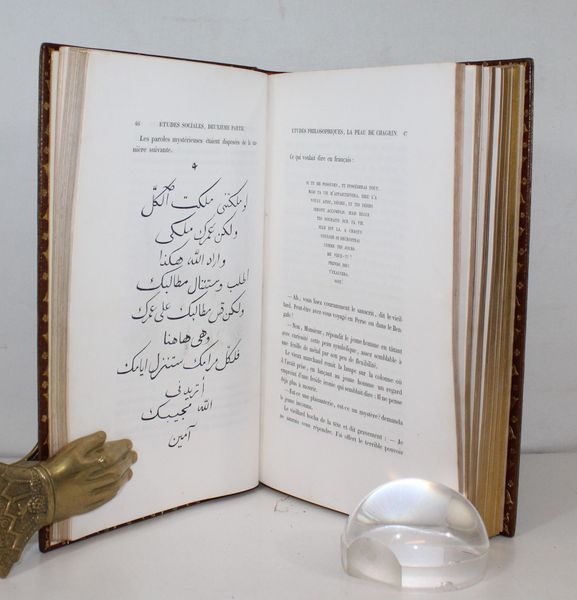 46 ETUDES SOCIALES, DEUXIÈME PARTIE.
Les paroles mystérieuses étaient disposées de la ma-
nière suivante.
لو ملكتنى ملكت الكلّ
ولكن عمرك ملكى
واراد الله هكذا
اطلب وستنال مطالبك
ولكن قس مطالبك على عمرك
وهى هاهنا
فبكلّ مرامك ستنزل ايامك
أتريد فى
الله مجيبك
آمين
ETUDES PHILOSOPHIQUES, LA PEAU DE CHAGRIN.
Ce qui voulait dire en français :
SI TU ME POSSÈDES, TU POSSÉDERAS TOUT.
MAIS TA VIE M'APPARTIENDRA. DIEU L'A
VOULU AINSI. DÉSIRE, ET TES DÉSIRS
SERONT ACCOMPLIS. MAIS RÈGLE
TES SOUHAITS SUR TA VIE.
ELLE EST LA. A CHAQUE
VOULOIR JE DÉCROITRAI
COMME TES JOURS.
ME VEUX-TU ?
PRENDS. DIEU
T'EXAUCERA.
SOIT !
— Ah, vous lisez couramment le sanscrit, dit le vieil-
lard. Peut-être avez vous voyagé en Perse ou dans le Ben-
gale ?
— Non, Monsieur, répondit le jeune homme en tâtant
avec curiosité cette peau symbolique, assez semblable à
une feuille de métal par son peu de flexibilité.
Le vieux marchand remit la lampe sur la colonne où
il l'avait prise, en lançant au jeune homme un regard
empreint d'une froide ironie qui semblait dire : Il ne pense
déjà plus à mourir.
— Est-ce une plaisanterie, est-ce un mystère? demanda
le jeune inconnu.
Le vieillard hocha de la tête et dit gravement : — Je
ne saurais vous répondre. J'ai offert le terrible pouvoir